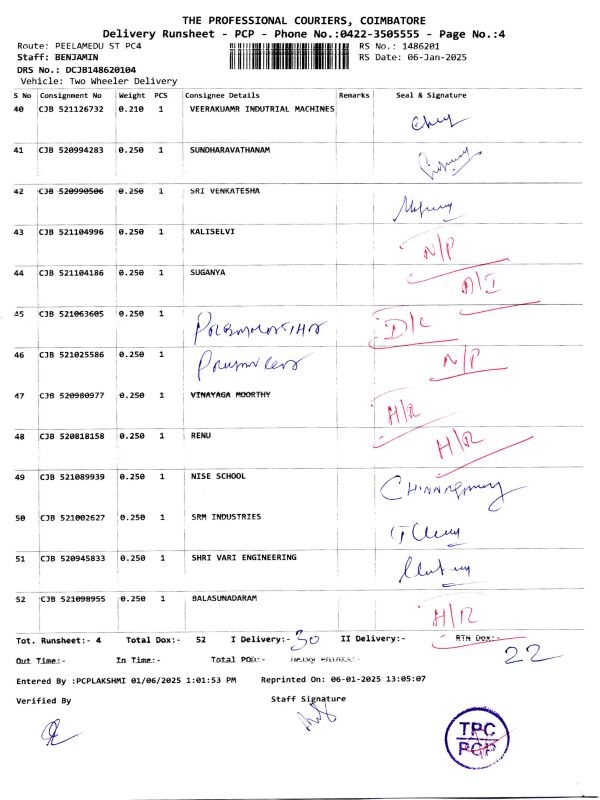 THE PROFESSIONAL COURIERS, COIMBATORE
Delivery Runsheet - PCP - Phone No.:0422-3505555 - Page No.:4
Route: PEELAMEDU ST PC4 RS No.: 1486201
Staff: BENJAMIN RS Date: 06-Jan-2025
DRS No.: DCJB148620104
Vehicle: Two Wheeler Delivery
S No Consignment No Weight PCS Consignee Details Remarks Seal & Signature
40 CJB 521126732 0.210 1 VEERAKUAMR INDUTRIAL MACHINES
41 CJB 520994283 0.250 1 SUNDHARAVATHANAM
42 CJB 520990506 0.250 1 SRI VENKATESHA
43 CJB 521104996 0.250 1 KALISELVI N/P
44 CJB 521104186 0.250 1 SUGANYA D/I
45 CJB 521063605 0.250 1 D/L
46 CJB 521025586 0.250 1 N/P
47 CJB 520980977 0.250 1 VINAYAGA MOORTHY H/R
48 CJB 520818158 0.250 1 RENU H/R
49 CJB 521089939 0.250 1 NISE SCHOOL
50 CJB 521002627 0.250 1 SRM INDUSTRIES
51 CJB 520945833 0.250 1 SHRI VARI ENGINEERING
52 CJB 521098955 0.250 1 BALASUNADARAM H/R
Tot. Runsheet:- 4 Total Dox:- 52 I Delivery:- 30 II Delivery:- RTN Dox:- 22
Out Time:- In Time:- Total POD:-
Entered By :PCPLAKSHMI 01/06/2025 1:01:53 PM Reprinted On: 06-01-2025 13:05:07
Verified By Staff Signature
TPC
PCP